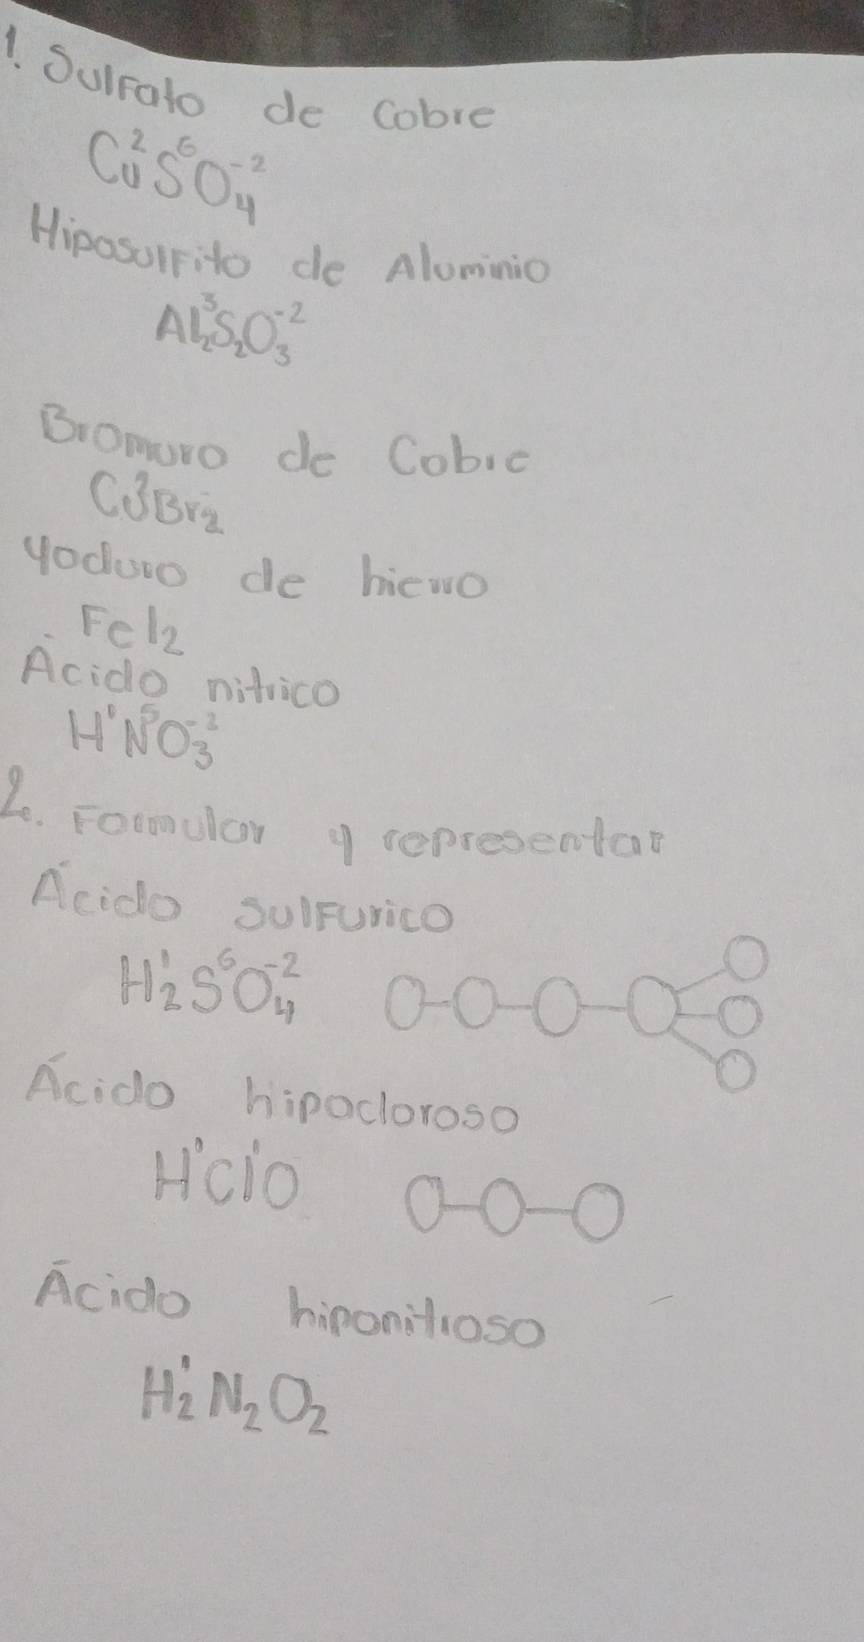 1. Sulfato de Cobre
Cu²S⁶O₄⁻²
Hiposulfito de Aluminio
Al₂³S₂O₃⁻²
Bromuro de Cobre
Br₂
Yoduro de hierro
FeI₂
Ácido nítrico
H¹N⁵O₃⁻²
2. Formular y representar
Ácido sulfurico
H₂¹S⁶O₄⁻²
Ácido hipocloroso
H¹Cl¹O
Ácido hiponitroso
H₂¹N₂O₂